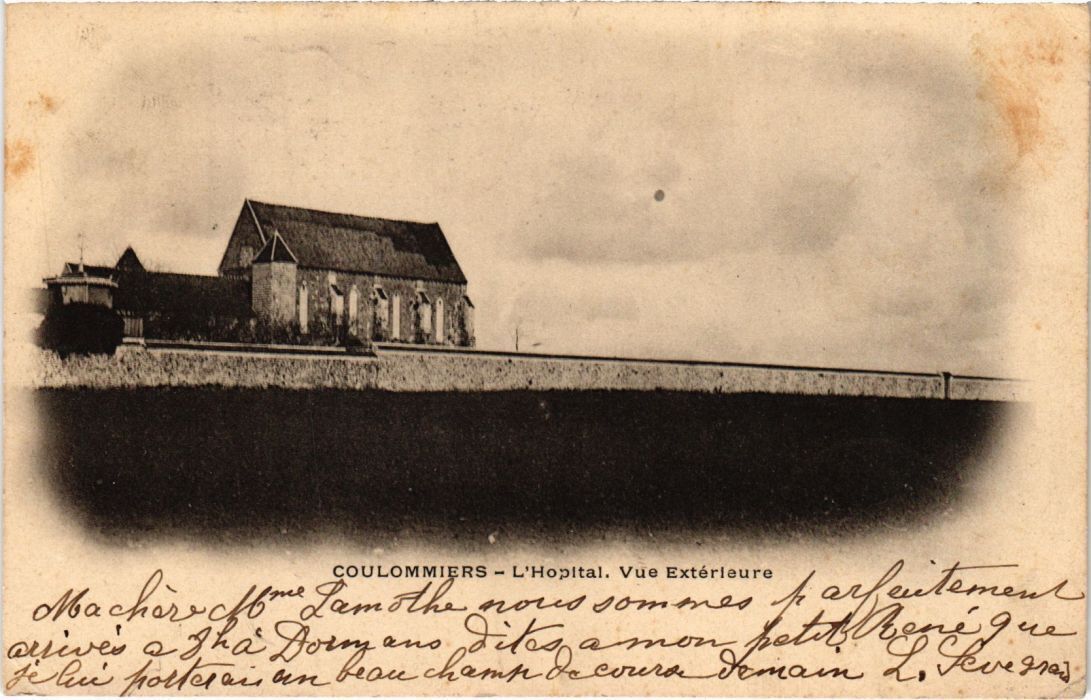 COULOMMIERS - L'Hopital. Vue Extérieure
Ma chère Mme Lamothe nous sommes parfaitement
arrivés a 7h à Dormans dites a mon petit René que
je lui porterai un beau de course demain L.